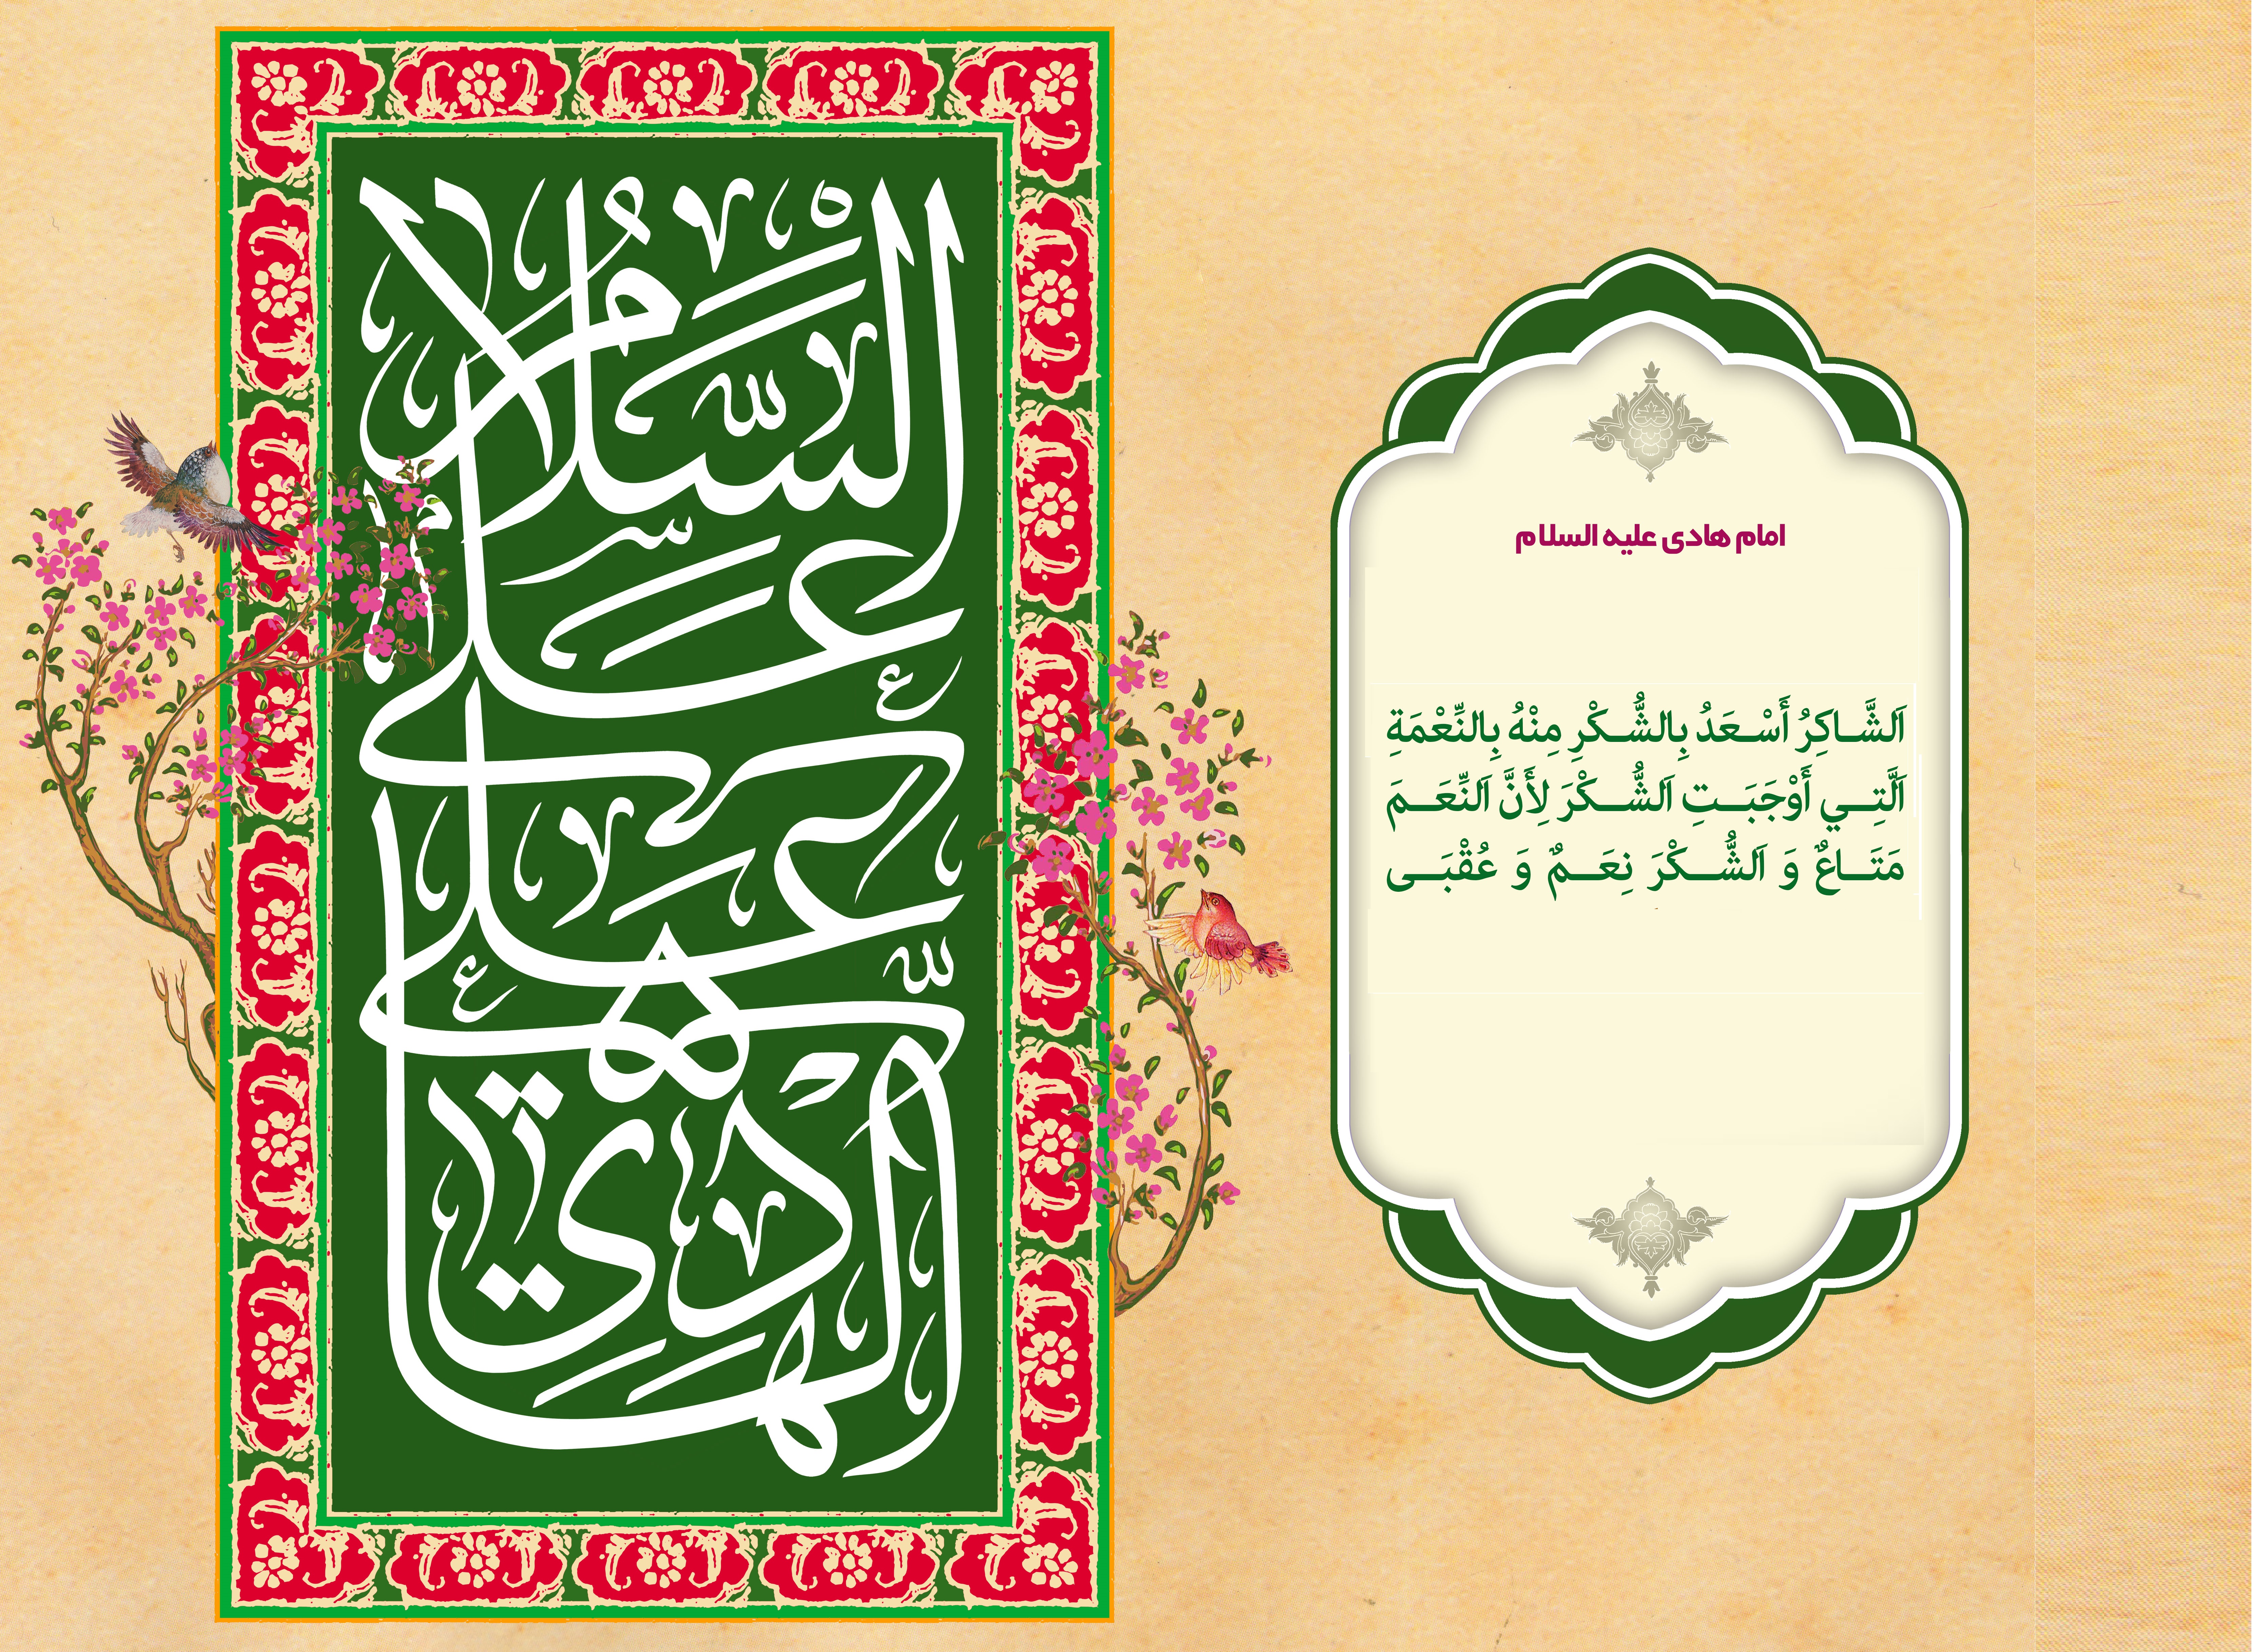 السَّلامُ
عَلى
عَلی
الهادِي
امام هادی علیه السلام
اَلشَّاكِرُ أَسْعَدُ بِالشُّكْرِ مِنْهُ بِالنِّعْمَةِ
اَلَّتِي أَوْجَبَتِ اَلشُّكْرَ لِأَنَّ اَلنِّعَمَ
مَتَاعٌ وَ اَلشُّكْرَ نِعَمٌ وَ عُقْبَى